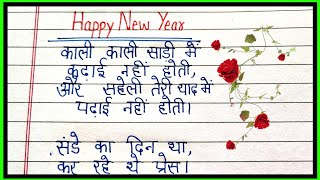 Happy New Year
काली काली साड़ी में
कढ़ाई नहीं होती,
और सहेली तेरी याद में
पढ़ाई नहीं होती।
संडे का दिन था,
कर रहे थे प्रेस।